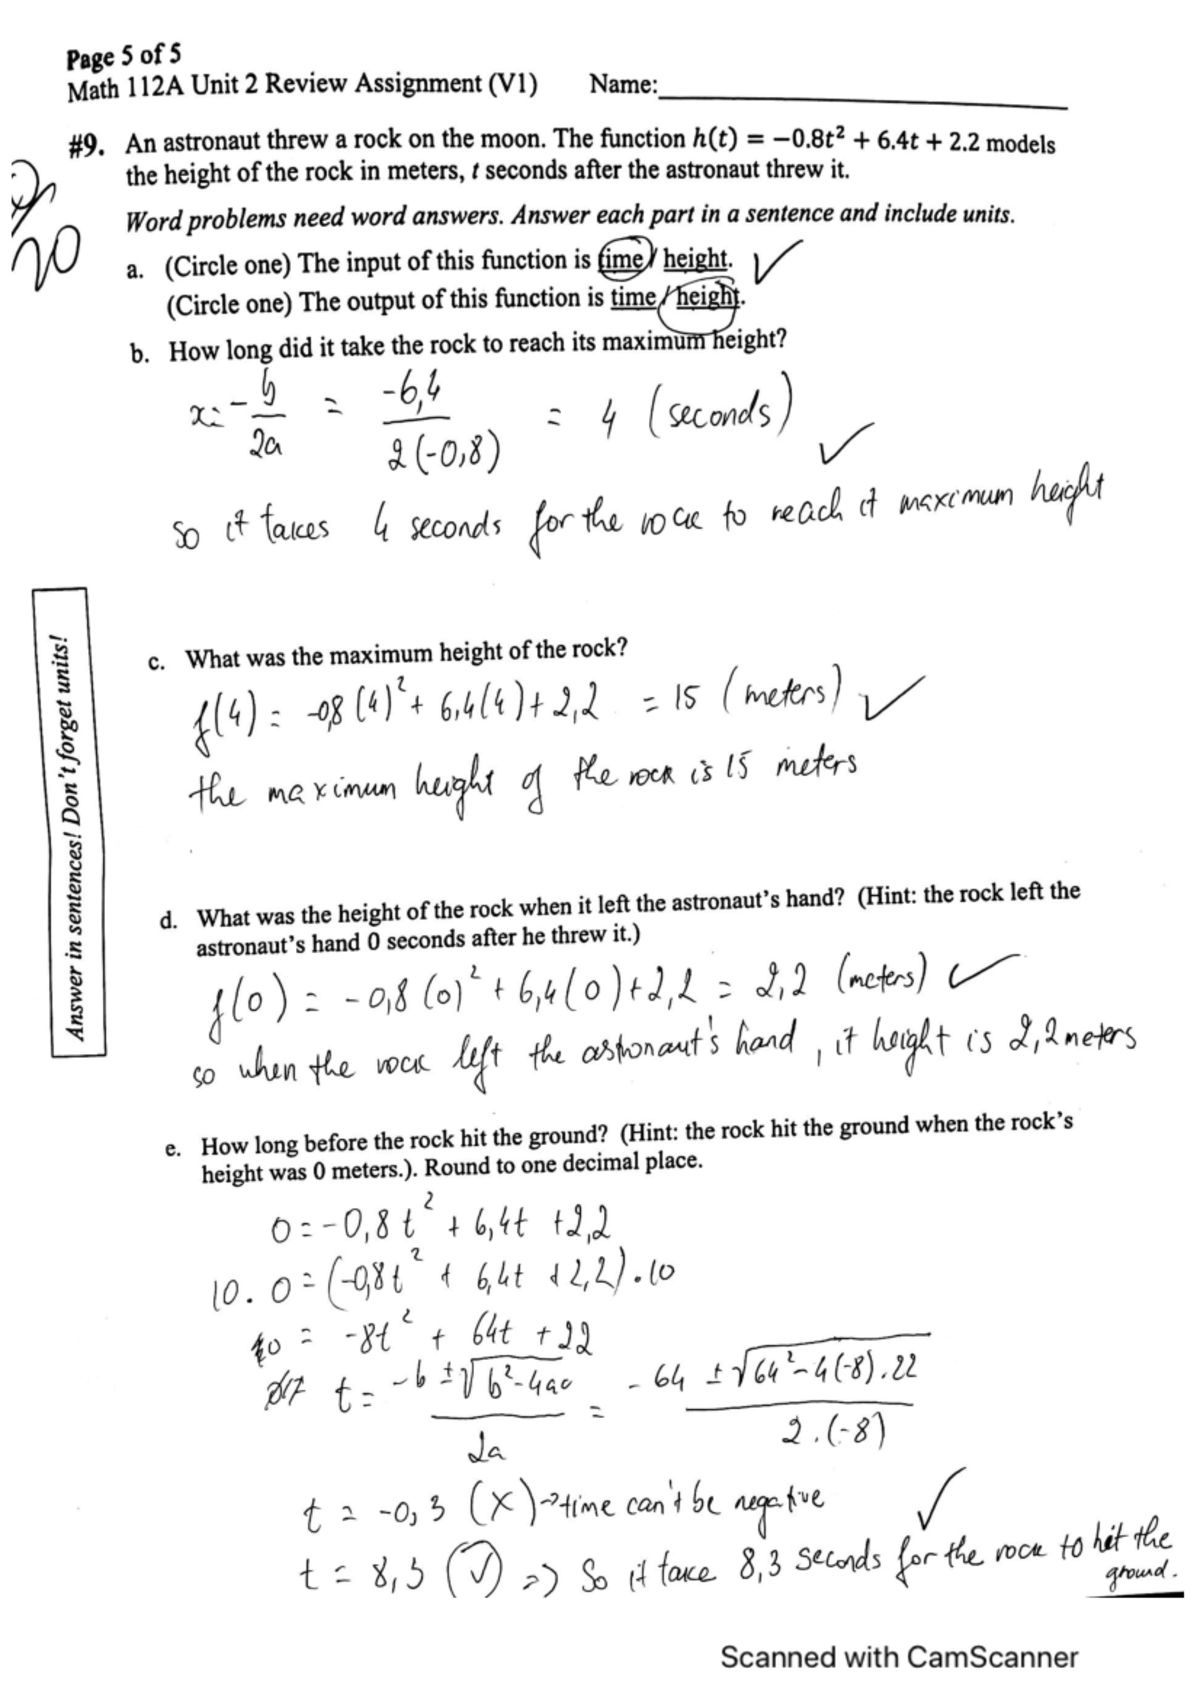 Page 5 of 5
Math 112A Unit 2 Review Assignment (V1) Name:
#9. An astronaut threw a rock on the moon. The function h(t) = −0.8t² + 6.4t + 2.2 models
the height of the rock in meters, t seconds after the astronaut threw it.
20
Word problems need word answers. Answer each part in a sentence and include units.
a. (Circle one) The input of this function is time / height. ✓
(Circle one) The output of this function is time / height.
b. How long did it take the rock to reach its maximum height?
x = -b/2a = -6,4/2(-0,8) = 4 (seconds) ✓
so it takes 4 seconds for the rock to reach it maximum height
Answer in sentences! Don't forget units!
c. What was the maximum height of the rock?
f(4) = -0,8(4)² + 6,4(4) + 2,2 = 15 (meters) ✓
the maximum height of the rock is 15 meters
d. What was the height of the rock when it left the astronaut's hand? (Hint: the rock left the
astronaut's hand 0 seconds after he threw it.)
f(0) = -0,8(0)² + 6,4(0) + 2,2 = 2,2 (meters) ✓
so when the rock left the astronaut's hand, it height is 2,2 meters
e. How long before the rock hit the ground? (Hint: the rock hit the ground when the rock's
height was 0 meters.). Round to one decimal place.
0 = -0,8t² + 6,4t + 2,2
10. 0 = (-0,8t² + 6,4t + 2,2).10
0 = -8t² + 64t + 22
t = -b ± √b²-4ac / 2a = -64 ± √64²-4(-8).22 / 2.(-8)
t = -0,3 (X) → time can't be negative ✓
t = 8,3 (√) => So it take 8,3 seconds for the rock to hit the
ground.
Scanned with CamScanner